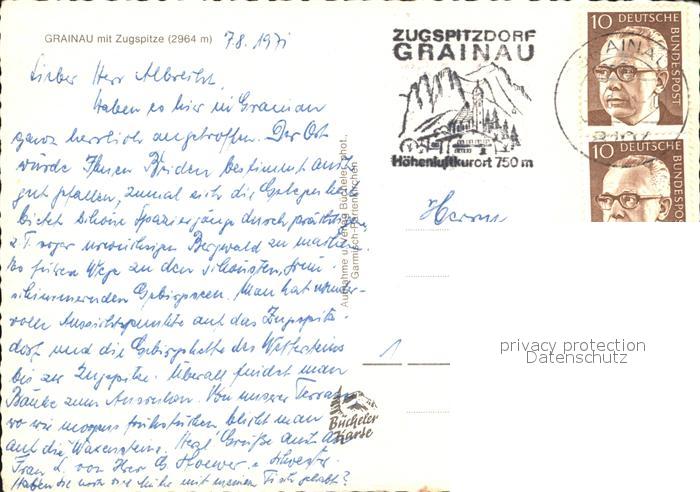 GRAINAU mit Zugspitze (2964 m)
7.8.1971
Lieber Herr Albrecht,
Haben es hier in Grainau
ganz herrlich angetroffen. Der Ort
würde Ihnen Beiden bestimmt auch
gut gefallen, zumal sich die Gelegenheit
bietet schöne Spaziergänge durch prächtigen,
z. T. sogar urwüchsigen Bergwald zu machen.
Es führen Wege zu den schönsten, grün
schimmernden Gebirgsseen. Man hat wunder-
volle Aussichtspunkte auf das Zugspitz-
dorf und die Gebirgskette des Wettersteins
bis zur Zugspitze. Überall findet man
Bänke zum Ausruhen. Von unserer Terrasse
wo wir morgens frühstücken blickt man
auf die Waxensteine. Herzl. Grüße auch an
Frau L. von Herr G. u. Schwester.
Haben Sie noch viel Mühe mit meinem Tisch gehabt?
Aufnahme u. Verlag Bücheler, phot.,
Garmisch-Partenkirchen
Bücheler
Karte
ZUGSPITZDORF
GRAINAU
Höhenluftkurort 750 m
GRAINAU
10 DEUTSCHE
BUNDESPOST
10 DEUTSCHE
BUNDESPOST
Herrn
privacy protection
Datenschutz